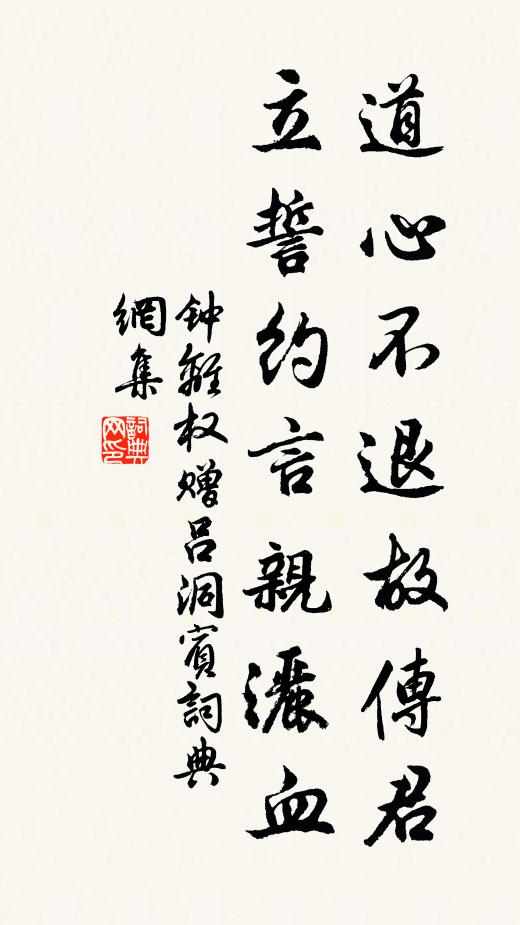 道心不退故傳君
立誓約言親灑血
钟離权赠吕洞賓詞典
網集
詞典
网印